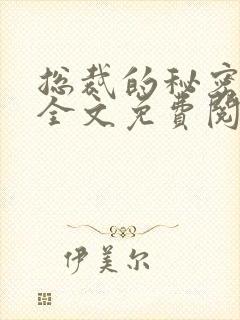 总裁的秘密
全文免費閱
伊美尔